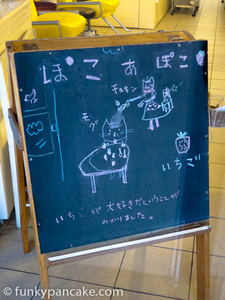 ぽこ あ ぽこ
チョキン
モグ
いちご
いちごが大好きだということが
わかりました。
© funkypancake.com